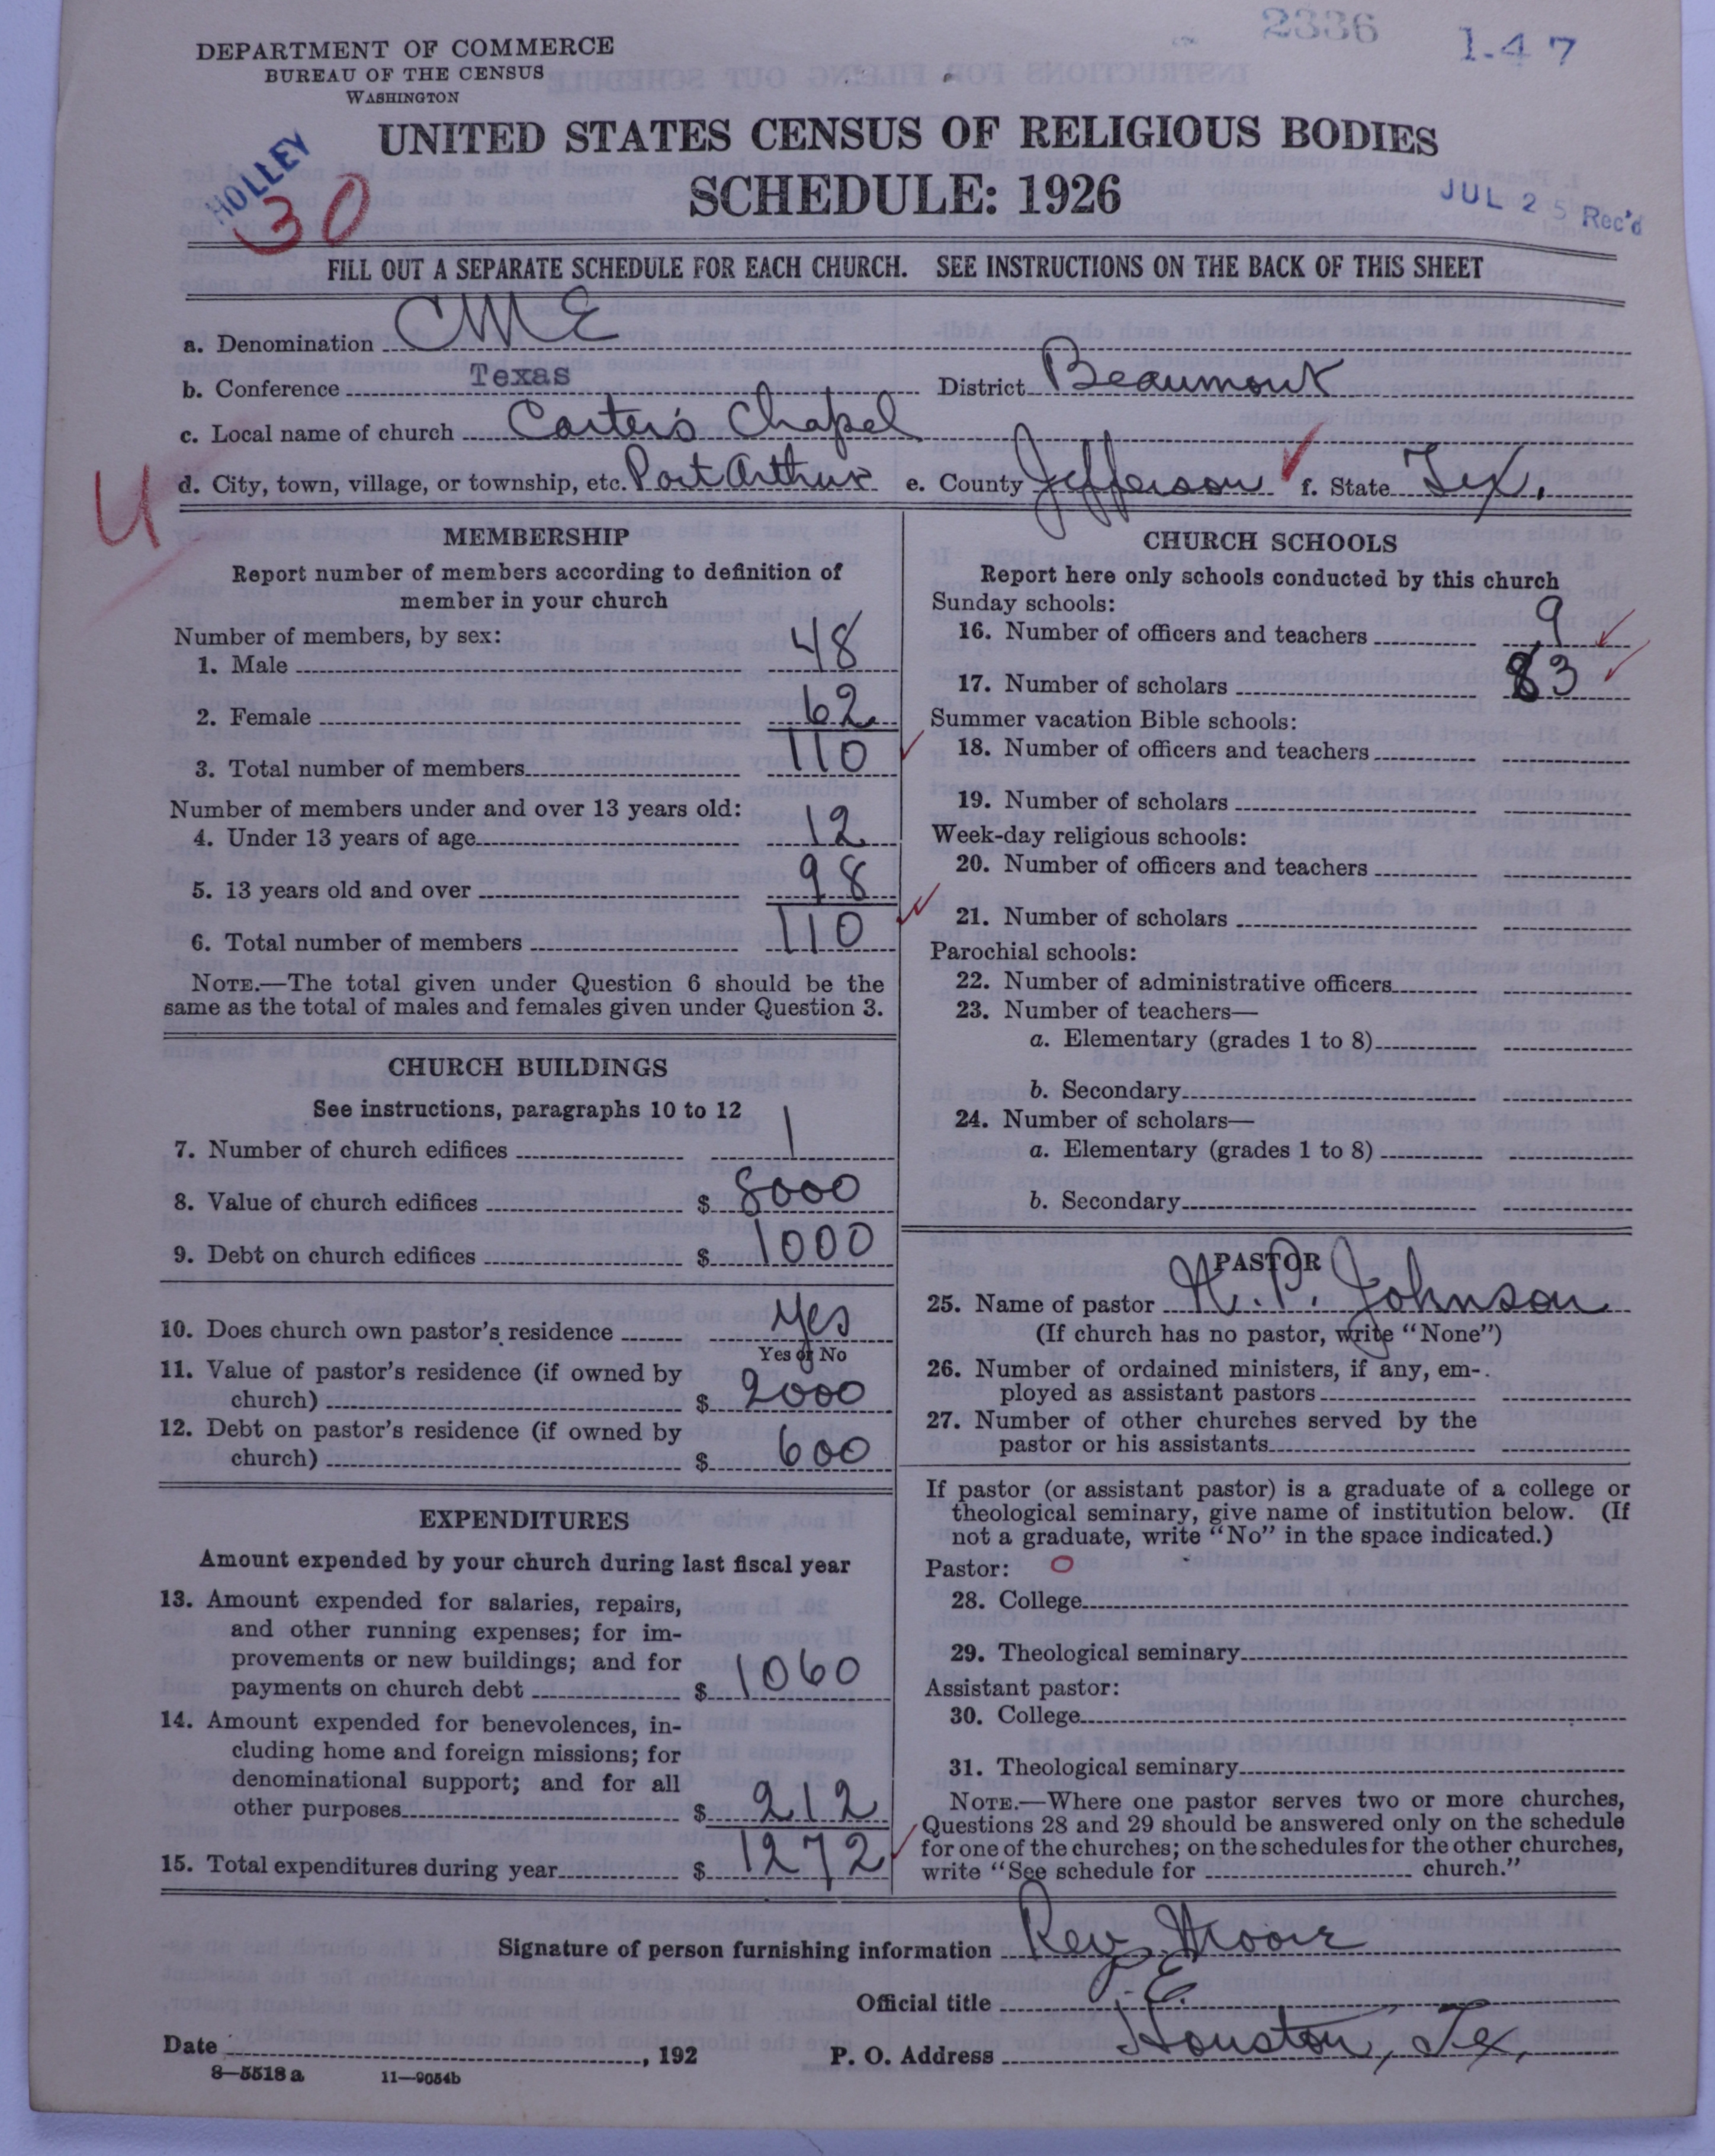 2336
1-47
DEPARTMENT OF COMMERCE
BUREAU OF THE CENSUS
WASHINGTON
UNITED STATES CENSUS OF RELIGIOUS BODIES
SCHEDULE: 1926
HOLLEY
30
JUL 25 Rec'd
FILL OUT A SEPARATE SCHEDULE FOR EACH CHURCH. SEE INSTRUCTIONS ON THE BACK OF THIS SHEET
a. Denomination CME
b. Conference Texas District Beaumont
c. Local name of church Carter's Chapel
d. City, town, village, or township, etc. Port Arthur e. County Jefferson f. State Tex.
4
MEMBERSHIP
Report number of members according to definition of
member in your church
Number of members, by sex:
1. Male 48
2. Female 62
3. Total number of members 110
Number of members under and over 13 years old:
4. Under 13 years of age 12
5. 13 years old and over 98
6. Total number of members 110
NOTE.—The total given under Question 6 should be the
same as the total of males and females given under Question 3.
CHURCH BUILDINGS
See instructions, paragraphs 10 to 12
7. Number of church edifices 1
8. Value of church edifices $ 8000
9. Debt on church edifices $ 1000
10. Does church own pastor's residence Yes
Yes or No
11. Value of pastor's residence (if owned by
church) $ 2000
12. Debt on pastor's residence (if owned by
church) $ 600
EXPENDITURES
Amount expended by your church during last fiscal year
13. Amount expended for salaries, repairs,
and other running expenses; for im-
provements or new buildings; and for
payments on church debt $ 1060
14. Amount expended for benevolences, in-
cluding home and foreign missions; for
denominational support; and for all
other purposes $ 212
15. Total expenditures during year $ 1272
CHURCH SCHOOLS
Report here only schools conducted by this church
Sunday schools:
16. Number of officers and teachers 9
17. Number of scholars 83
Summer vacation Bible schools:
18. Number of officers and teachers
19. Number of scholars
Week-day religious schools:
20. Number of officers and teachers
21. Number of scholars
Parochial schools:
22. Number of administrative officers
23. Number of teachers—
a. Elementary (grades 1 to 8)
b. Secondary
24. Number of scholars—
a. Elementary (grades 1 to 8)
b. Secondary
PASTOR
25. Name of pastor N. P. Johnson
(If church has no pastor, write "None")
26. Number of ordained ministers, if any, em-
ployed as assistant pastors
27. Number of other churches served by the
pastor or his assistants
If pastor (or assistant pastor) is a graduate of a college or
theological seminary, give name of institution below. (If
not a graduate, write "No" in the space indicated.)
Pastor: O
28. College
29. Theological seminary
Assistant pastor:
30. College
31. Theological seminary
NOTE.—Where one pastor serves two or more churches,
Questions 28 and 29 should be answered only on the schedule
for one of the churches; on the schedules for the other churches,
write "See schedule for church."
Signature of person furnishing information Rev. Moore
Official title P. E.
Date , 192 P. O. Address Houston, Tex.
8—5518 a 11—9054b